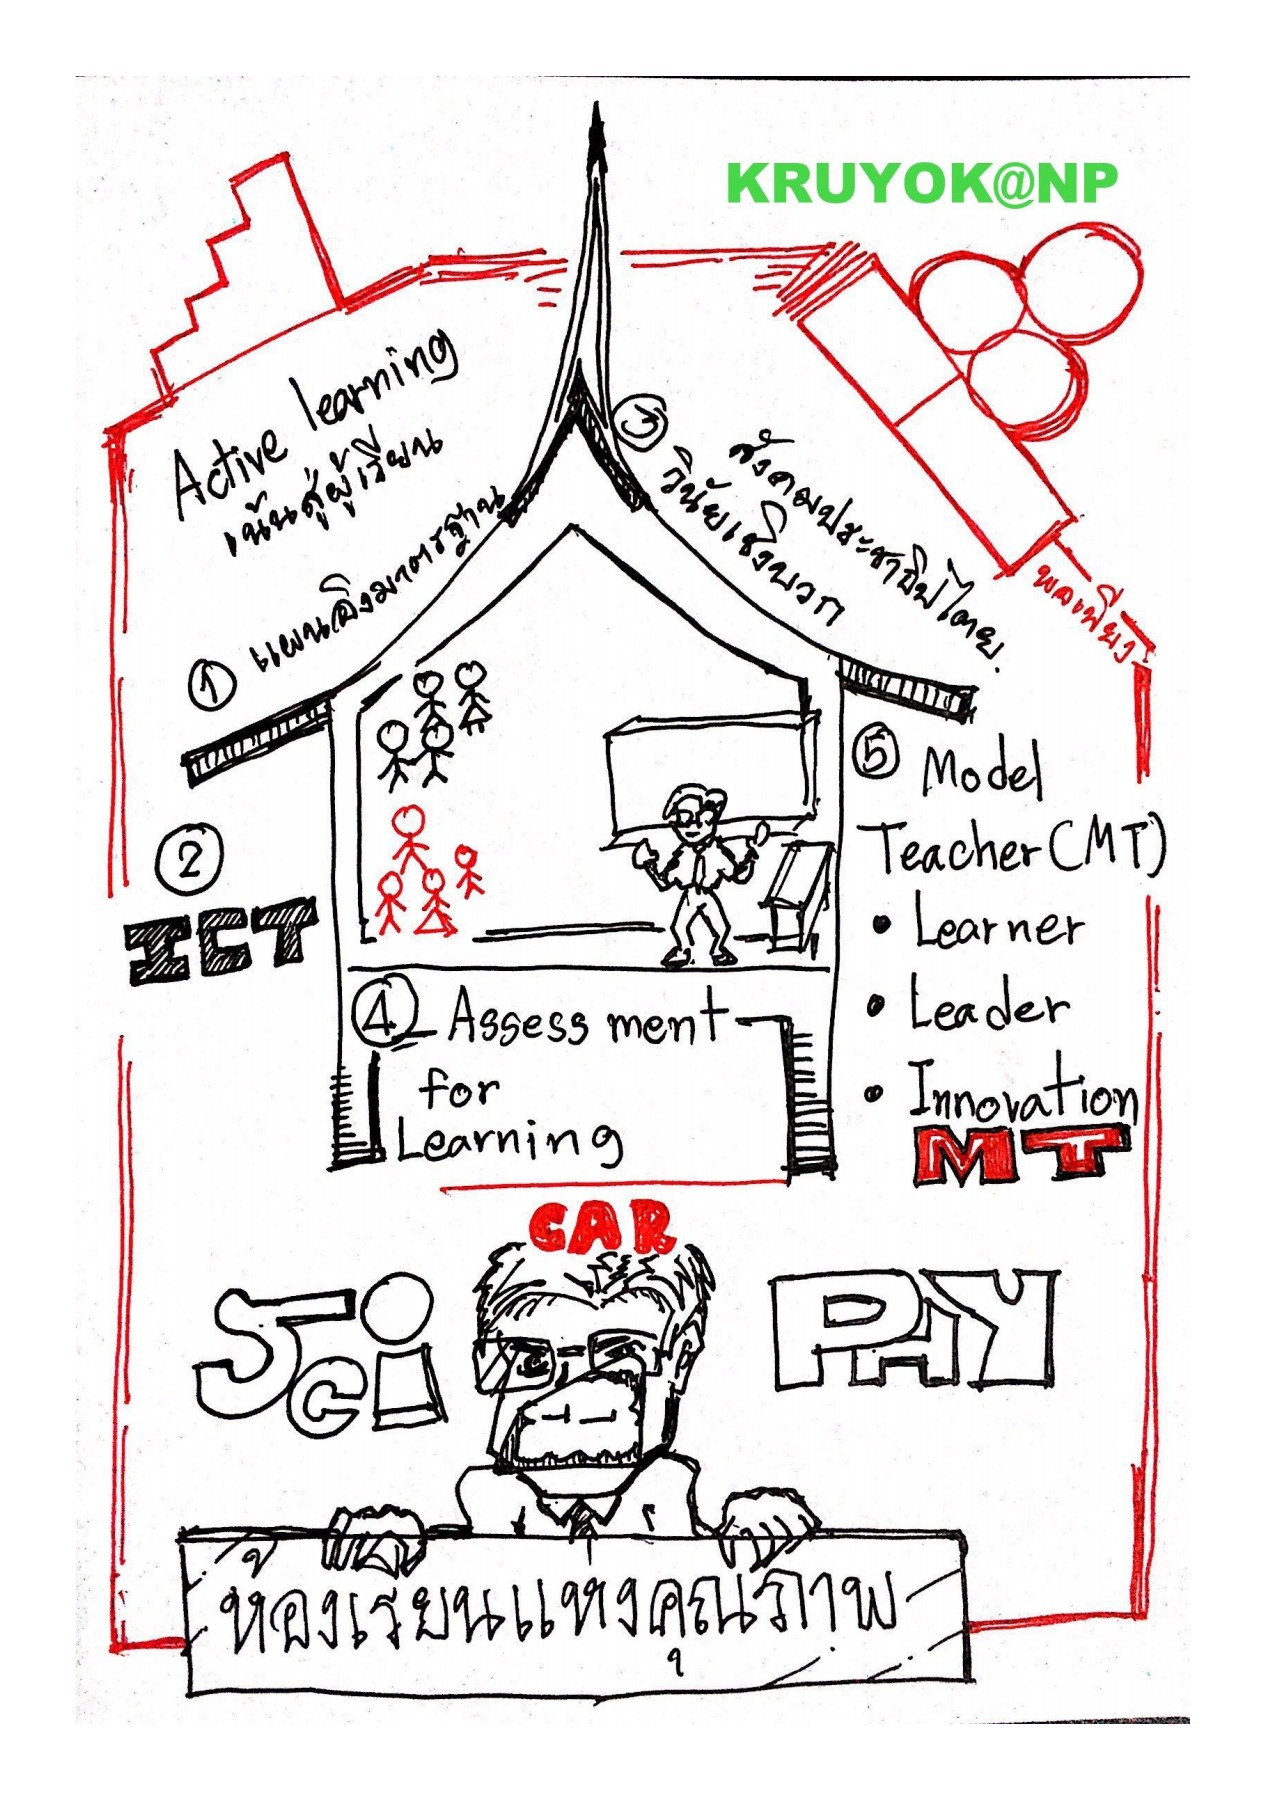 KRUYOK@NP
Active learning
เน้นสู่ผู้เรียน
① แผนอิงมาตรฐาน
③ วินัยเชิงบวก
สังคมประชาธิปไตย.
พอเพียง
② ICT
⑤ Model
Teacher (MT)
• Learner
• Leader
• Innovation
MT
④ Assessment
for
Learning
CAR
Sci
PAY
ห้องเรียนแห่งคุณภาพ